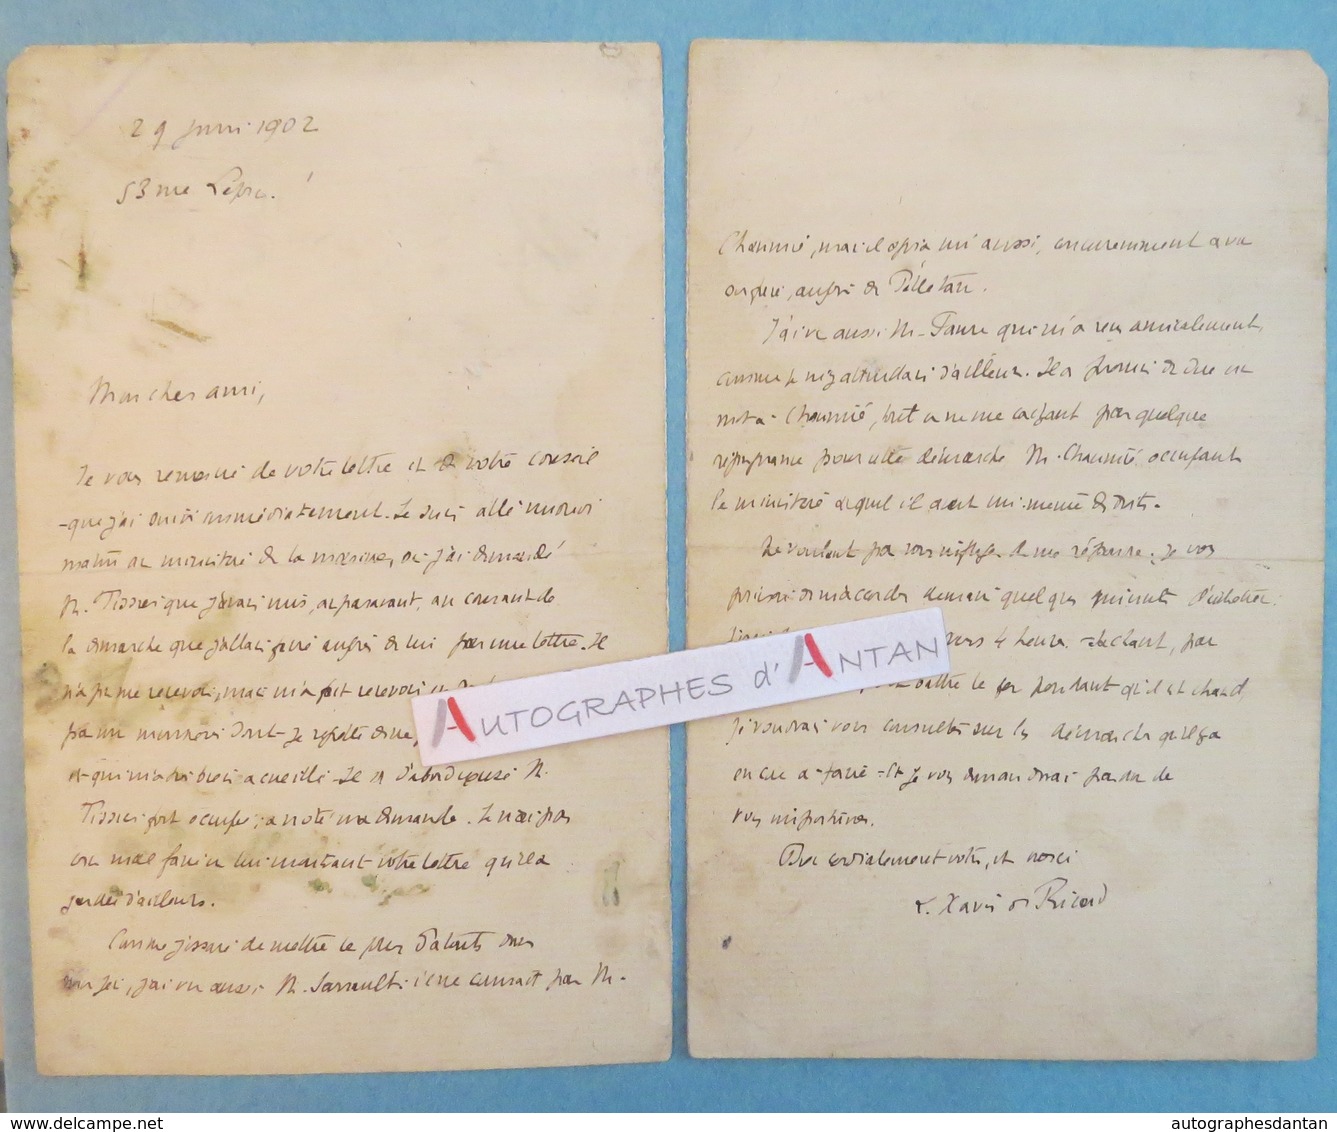 29 juin 1902
53 rue Lepic.
Mon cher ami,
Je vous remercie de votre lettre et de votre conseil
- que j'ai suivi immédiatement. Je suis allé
matin au ministère de la marine, où j'ai demandé
M. Tissier que j'avais mis, auparavant, au courant de
la démarche que j'allais faire auprès de lui par une lettre. Je
n'ai pu me recevoir, mais m'a fait recevoir
par un monsieur dont je
et qui m'a très bien accueilli. Je
Tissier fort occupé, a noté ma demande. Je n'ai pas
cru mal faire en lui montrant votre lettre qu'il a
gardée d'ailleurs.
Comme j'essaie de mettre le plus d'atouts dans
mon jeu, j'ai vu aussi M. Sarrault. il ne connaît pas M.
Chaumié, mais il agira lui aussi, concurremment avec
auprès de Pelletan.
J'ai vu aussi M. Faure qui m'a reçu amicalement,
comme je m'y attendais d'ailleurs. Il a promis de dire un
mot à Chaumié, tout en ne me cachant pas quelque
répugnance pour cette démarche M. Chaumié occupant
le ministère auquel il avait lui-même des droits.
Ne voulant pas vous infliger de me répondre, je vous
prierai de m'accorder demain quelques minutes d'entretien.
vers 4 heures. Sachant, par
battre le fer pendant qu'il est chaud,
je voudrais vous consulter sur les démarches qu'il y a
encore à faire - et je vous demanderai pardon de
mes importunités.
Bien cordialement votre, et merci
L. Xavier de Ricard
AUTOGRAPHES d'ANTAN
www.delcampe.net
autographesdantan